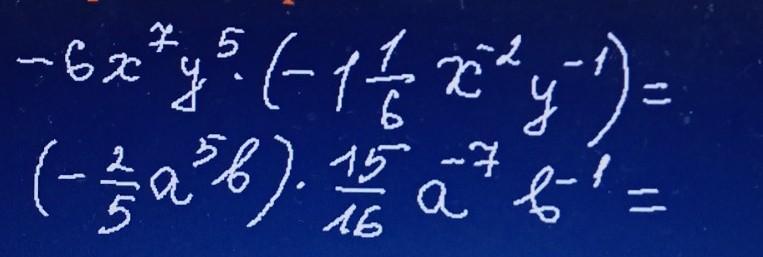 -6x⁷y⁵·(-1 1/6 x⁻²y⁻¹)=
(-2/5 a⁵b)·15/16 a⁻⁷b⁻¹=